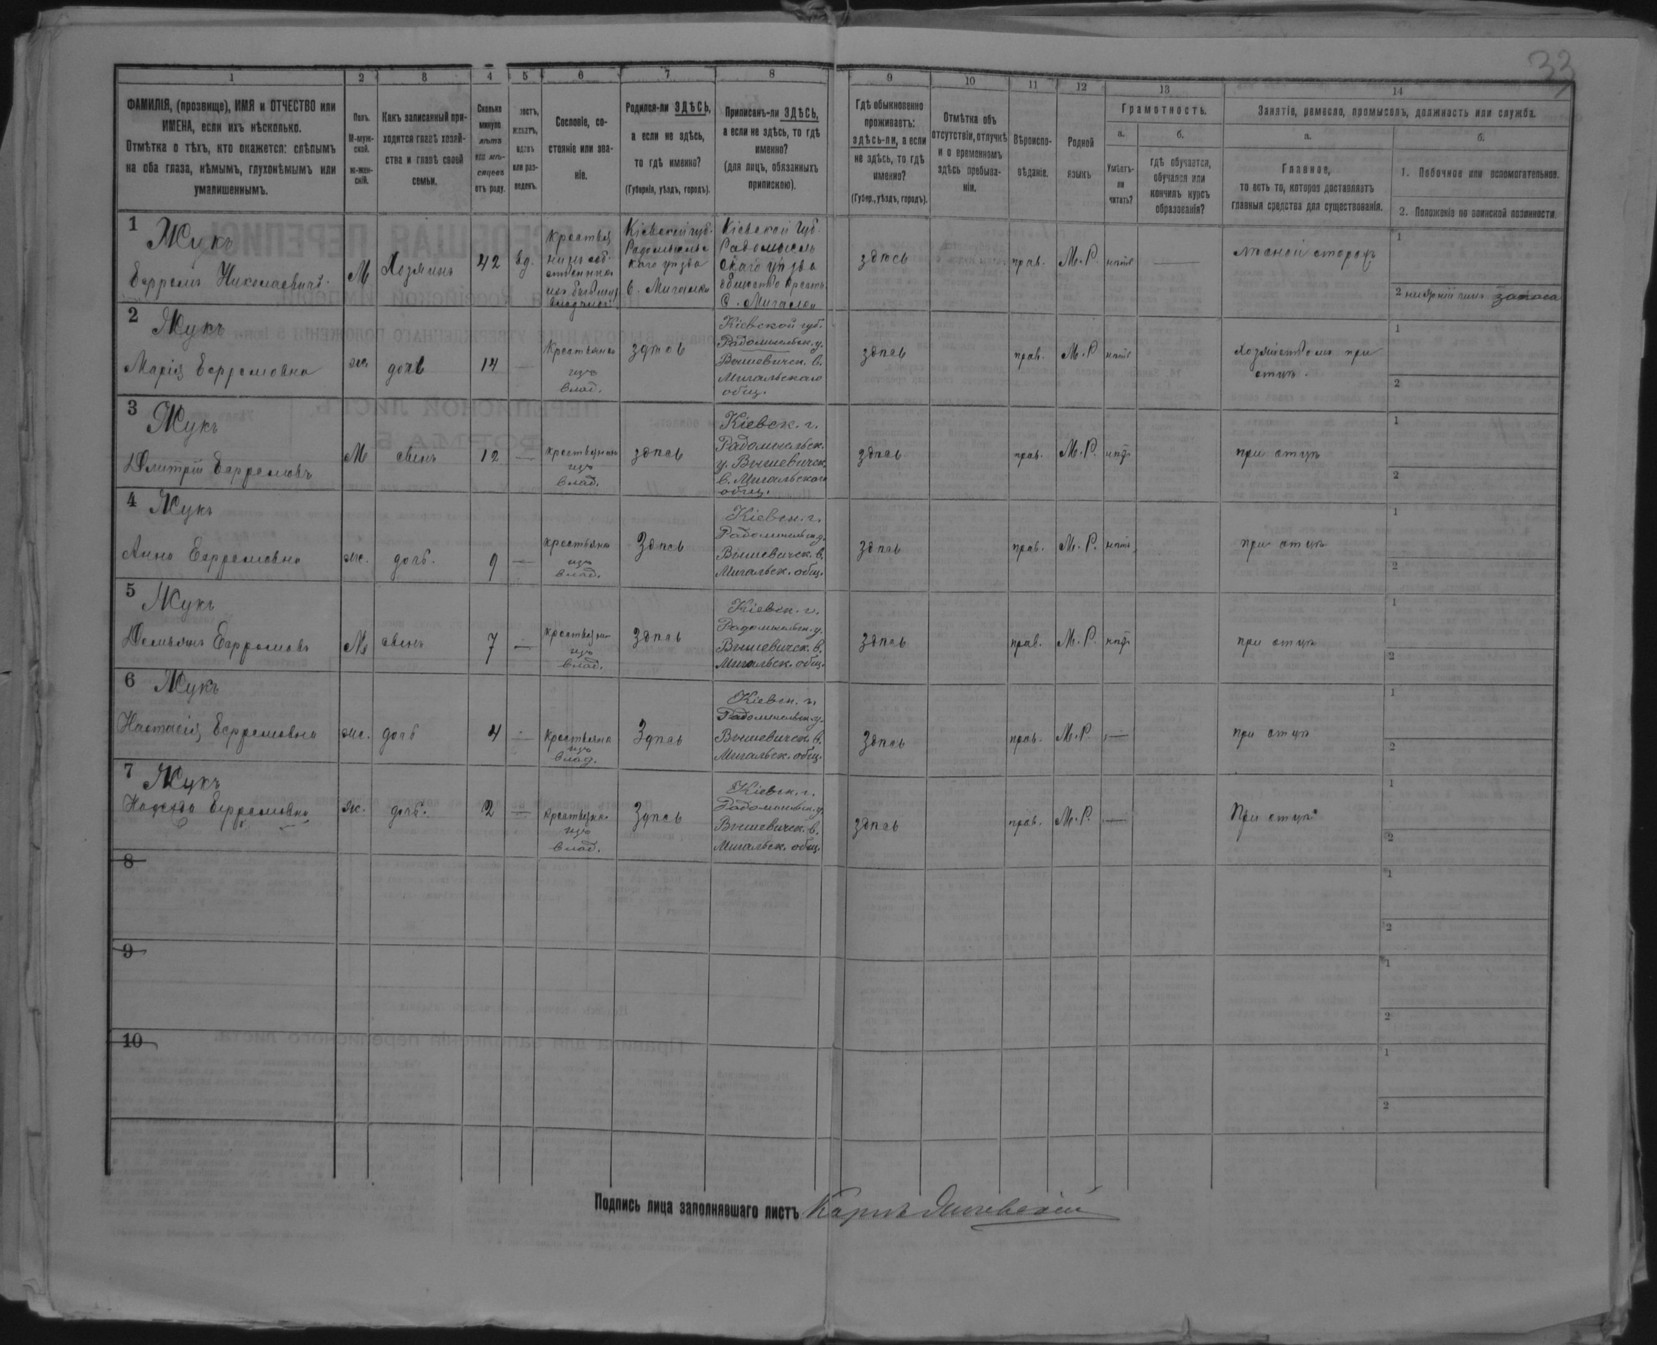 33
1 2 3 4 5 6 7 8 9 10 11 12 13 14
ФАМИЛІЯ, (прозвище), ИМЯ и ОТЧЕСТВО или ИМЕНА, если ихъ нѣсколько.
Отмѣтка о тѣхъ, кто окажется: слѣпымъ на оба глаза, нѣмымъ, глухонѣмымъ или умалишеннымъ.
Полъ.
М-мужской.
ж-женскій.
Какъ записанный приходится главѣ хозяйства и главѣ своей семьи.
Сколько минуло лѣтъ или мѣсяцевъ отъ роду.
или разведенъ.
Сословіе, состояніе или званіе.
Родился-ли ЗДѢСЬ,
а если не здѣсь,
то гдѣ именно?
(Губернія, уѣздъ, городъ).
Приписанъ-ли ЗДѢСЬ,
а если не здѣсь, то гдѣ именно?
(для лицъ, обязанныхъ припискою).
Гдѣ обыкновенно проживаетъ:
здѣсь-ли, а если не здѣсь, то гдѣ именно?
(Губер., уѣздъ, городъ).
Отмѣтка объ отсутствіи, отлучкѣ и о временномъ здѣсь пребываніи.
Вѣроисповѣданіе.
Родной языкъ
Грамотность.
а.
Умѣетъ-ли читать?
б.
гдѣ обучается, обучался или кончилъ курсъ образованія?
Занятіе, ремесло, промыселъ, должность или служба.
а.
Главное,
то есть то, которое доставляетъ главныя средства для существованія.
б.
1. Побочное или вспомогательное.
2. Положеніе по воинской повинности.
1 Жукъ
Ефремъ Николаевичъ
М Хозяинъ 42 вд.
Кіевской губ. Радомысльскаго уѣзда
Кіевской губ. Радомысльскаго уѣзда
здѣсь прав. М.Р. нѣтъ
лѣсной сторожъ
1
2 запаса
2 Жукъ
Марія Ефремовна
ж. дочь 14
Крестьянка изъ влад.
здѣсь
Кіевской губ. Радомысльск. у. Вышевичск. в. Мигальскаго общ.
здѣсь прав. М.Р. нѣтъ
хозяйствомъ при отцѣ.
1
2
3 Жукъ
Дмитрій Ефремовъ
М сынъ 12 —
крестьянинъ изъ влад.
здѣсь
Кіевск. г. Радомысльск. у. Вышевичск. в. Мигальскаго общ.
здѣсь прав. М.Р. нѣт
при отцѣ
1
2
4 Жукъ
Анна Ефремовна
ж. дочь. 9 —
крестьянка изъ влад.
Здѣсь
Кіевск. г. Радомысльск. у. Вышевичск. в. Мигальск. общ.
здѣсь прав. М.Р. нѣтъ
при отцѣ
1
2
5 Жукъ
Демьянъ Ефремовъ
М сынъ 7 —
крестьянин изъ влад.
Здѣсь
Кіевск. г. Радомысльск. у. Вышевичск. в. Мигальск. общ.
здѣсь прав. М.Р. нѣт
при отцѣ
1
2
6 Жукъ
Настасія Ефремовна
ж. дочь 4 —
крестьянка изъ влад.
Здѣсь
Кіевск. г. Радомысльск. у. Вышевичск. в. Мигальск. общ.
Здѣсь прав. М.Р —
при отцѣ
1
2
7 Жукъ
Надежда Ефремовна
ж. дочь. 2 —
крестьянка изъ влад.
Здѣсь
Кіевск. г. Радомысльск. у. Вышевичск. в. Мигальск. общ.
здѣсь прав. М.Р. —
При отцѣ
1
2
8
1
2
9
1
2
10
1
2
Подпись лица заполнявшаго листъ